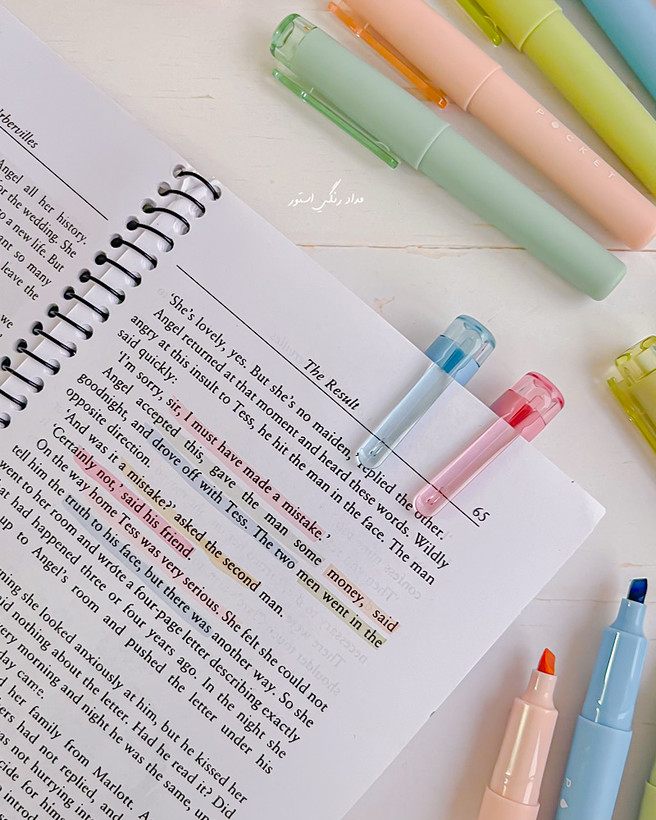 POCKET
مداد رنگی استور
rbervilles
Angel all her history.
or the wedding. She
to a new life. But
nt so many
leave the
we
The Result 65
'She's lovely, yes. But she's no maiden, replied the other.
Angel returned at that moment and heard these words. Wildly
angry at this insult to Tess, he hit the man in the face. The man
said quickly:
'I'm sorry, sir, I must have made a mistake.'
Angel accepted this, gave the man some money, said
goodnight, and drove off with Tess. The two men went in the
opposite direction.
'And was it a mistake?' asked the second man.
'Certainly not,' said his friend
On the way home Tess was very serious. She felt she could not
tell him the truth to his face, but there was another way. So she
went to her room and wrote a four-page letter describing exactly
at had happened three or four years ago. In the night she
up to Angel's room and pushed the letter under his
ning she looked anxiously at him, but he kissed her
aid nothing about the letter. Had he read it? Did
very morning and night he was the same, un
day came.
d her family from Marlott. A
ers had not replied, and
as not hurrying into
cide for him
introd